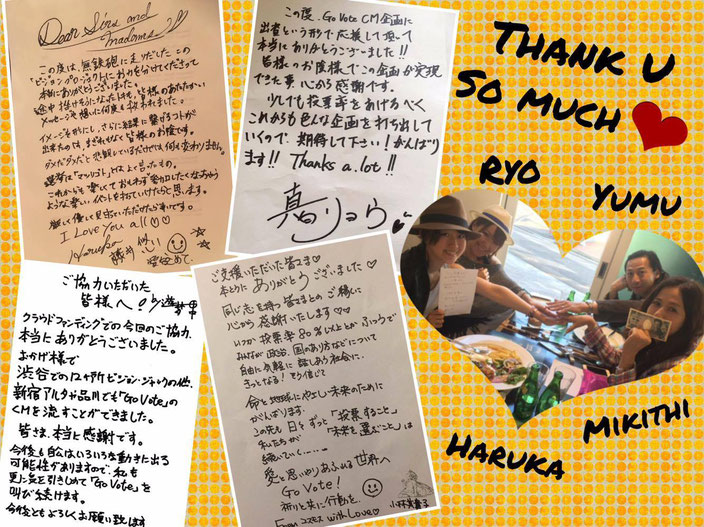 Dear Sirs and
Madams
この度は、無鉄砲に走りだした この
「ビジョンプロジェクト」にお力を分けてくださって
本当にありがとうございました。
途中 挫けそうになった時も、皆様のあたたかい
メッセージや想いに何度も救われました。
イメージを形にし、さらに結果に繋げることが
出来たのは、まぎれもなく皆様のお陰です。
ダメだダメだと悲観しているだけでは何も変わりません。
選挙は「マツリゴト」とはよく言ったもの。
これからも 楽しくて おもわず 動きだしたくなっちゃう
ような 楽しい イベントを打っていけたらと思います。
厳しく優しく見守っていただけたら幸いです。
I Love You all
Haruka
この度、Go Vote CM企画に
出資という形で応援して頂いて
本当にありがとうございました!!
皆様のお陰様でこの企画が実現
できた事、心から感謝です。
少しでも投票率をあげるべく
これからも色んな企画を打ち出して
いくので、期待して下さい!がんばり
ます!! Thanks a lot!!
ご協力いただいた
皆様へ
クラウドファンディングでの今回のご協力、
本当にありがとうございました。
おかげ様で
渋谷での12ヶ所ビジョン・ジャックの他、
新宿アルタや品川でも「Go Vote」の
CMを流すことができました。
皆さま、本当に感謝です。
今後も色々な動きに出る
可能性がありますので、私も
更に気を引きしめて「Go Vote」を
叫び続けます。
今後ともよろしくお願い致します
ご支援いただいた皆さま♡
本とうに ありがとうございました♡
同じ志を持つ皆さまとのご縁に
心から感謝いたします♡♡
いつか 投票率80%以上とか ふつうで
みんなが 政治、国のあり方などについて
自由に 気軽に 話しあう社会に、
きっとなる!そう信じて
命と地球にやさしい未来のために
がんばります。
この先も 日々ずっと「投票すること」
私たちが 「未来を選ぶこと」は
続いていく……
愛と思いやりあふれる 世界へ
Go Vote!
祈りと共に行動を…
From コスモス with Love♡
THANK U
SO MUCH
RYO
YUMU
HARUKA
MIKITHI